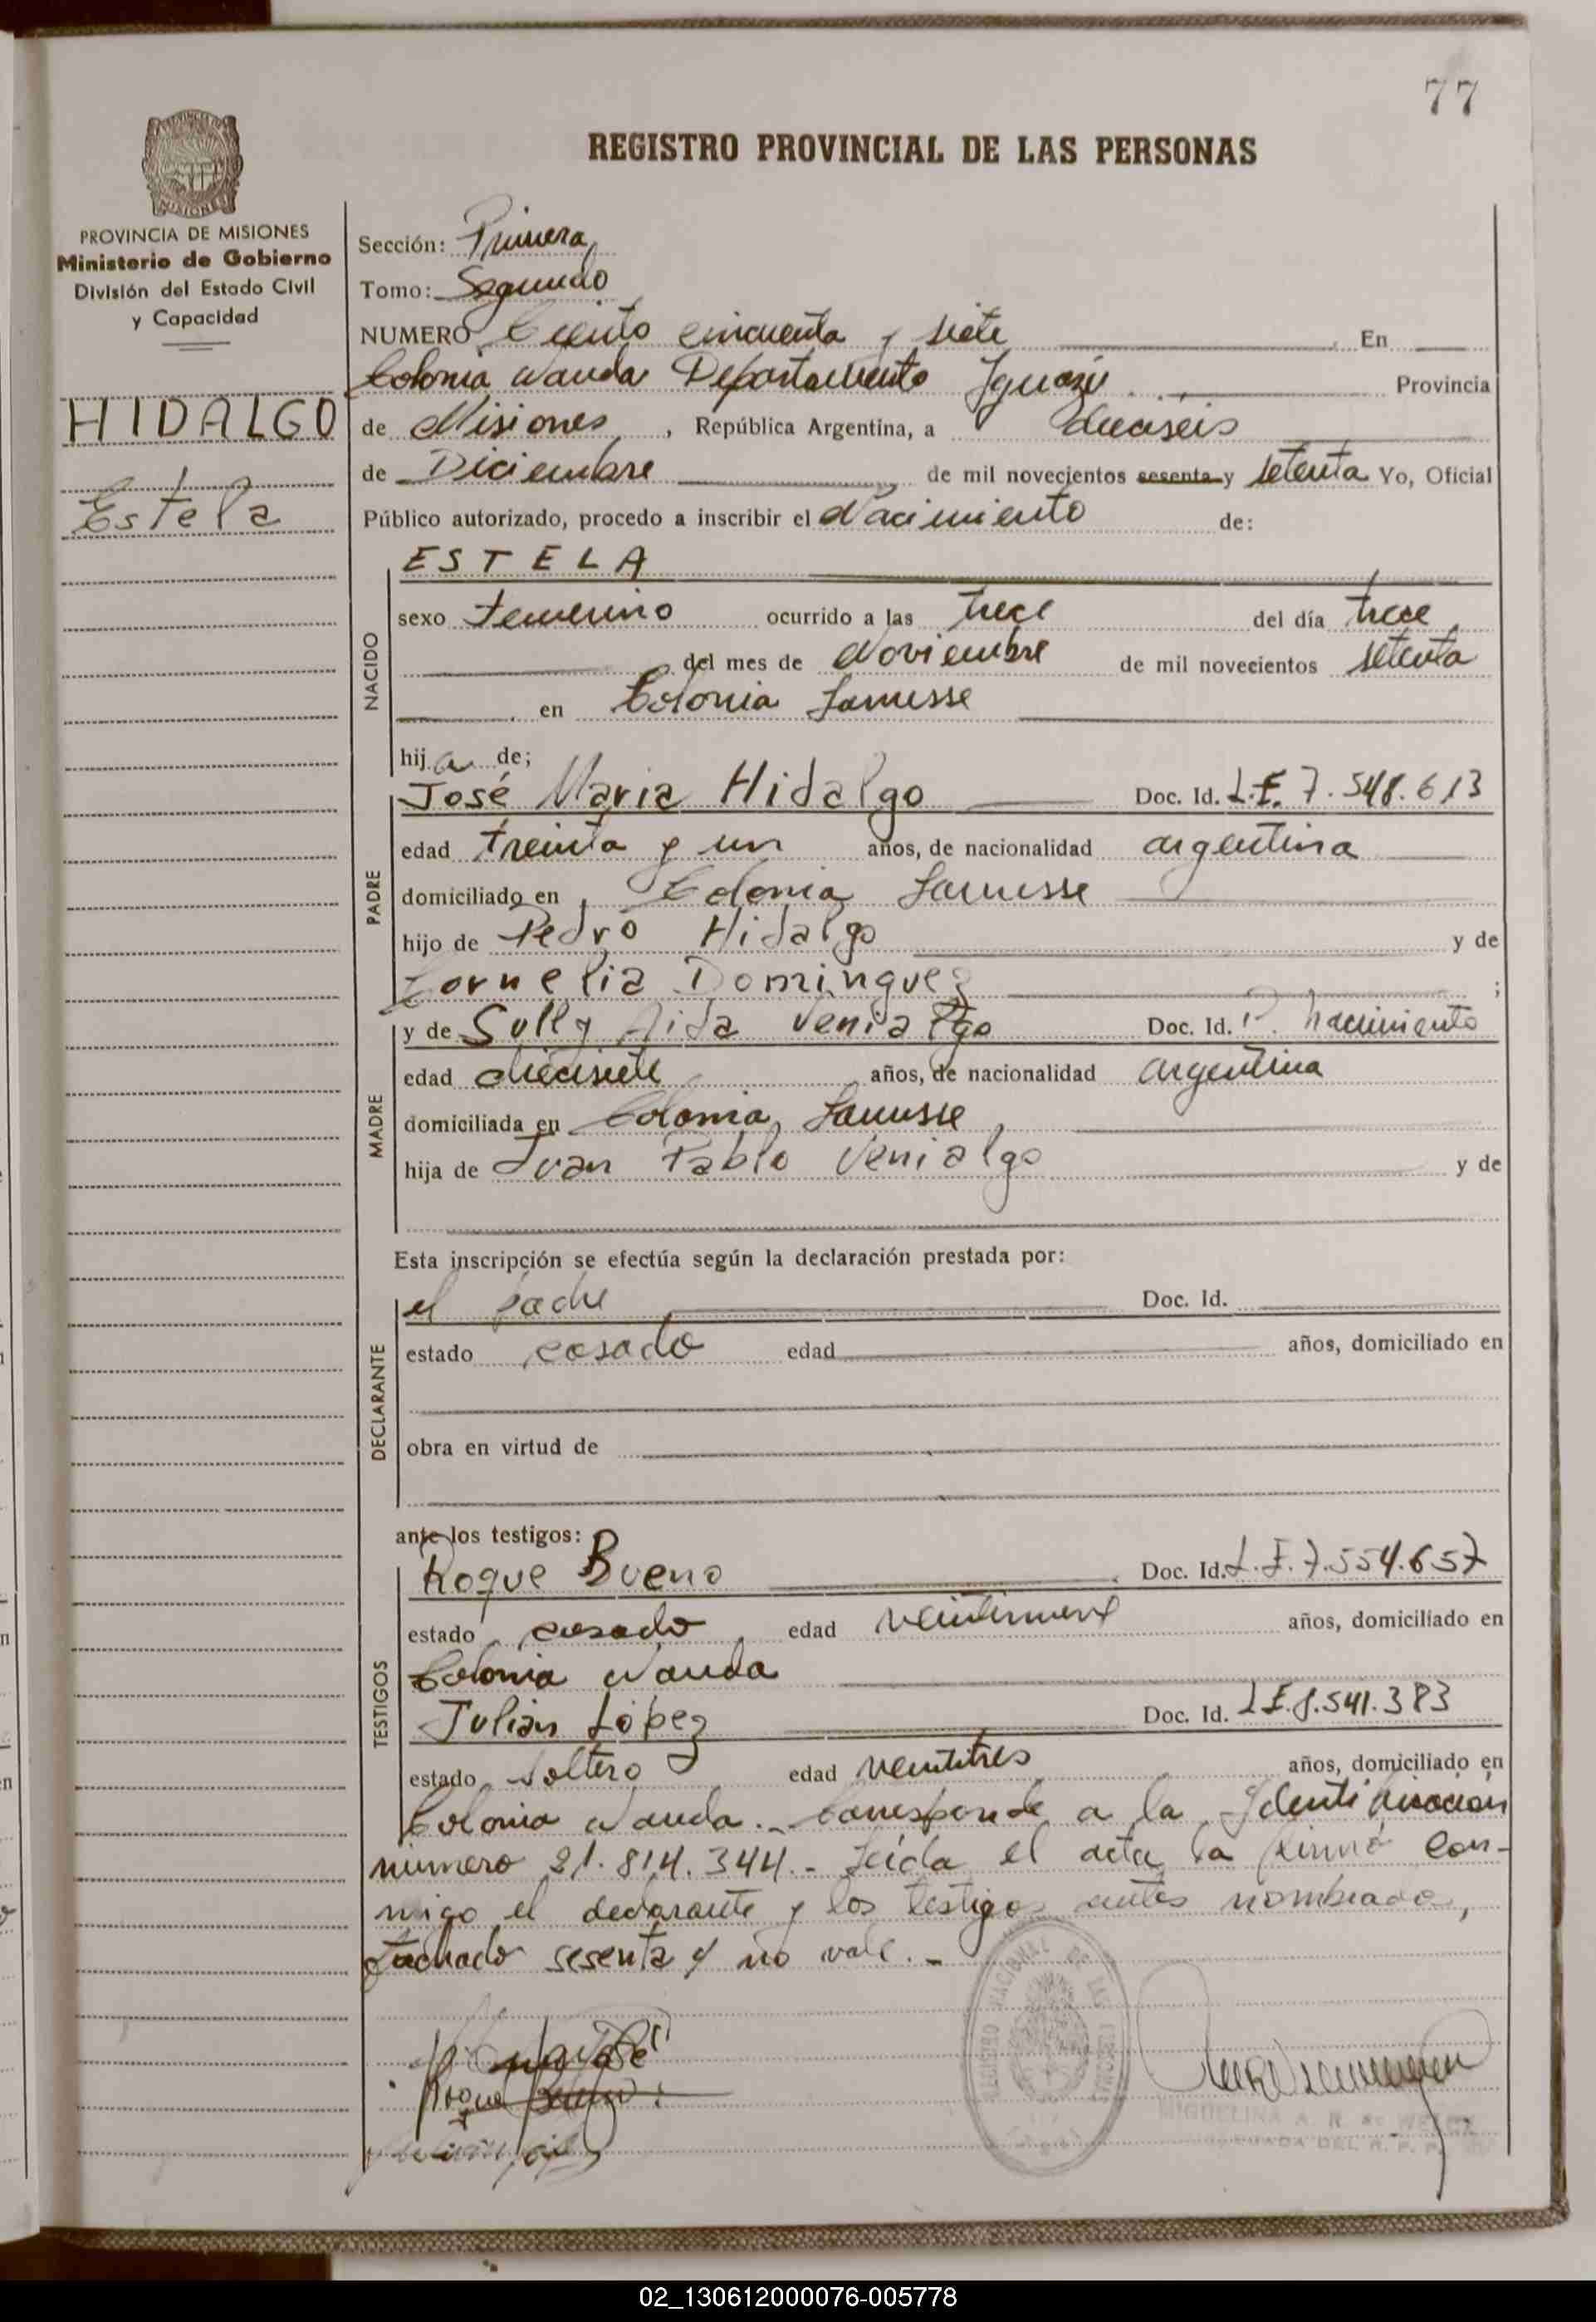 77
REGISTRO PROVINCIAL DE LAS PERSONAS
PROVINCIA DE MISIONES
Ministerio de Gobierno
División del Estado Civil
y Capacidad
HIDALGO
Estela
Sección: Primera
Tomo: Segundo
NUMERO Ciento cincuenta y siete En
Colonia Wanda Departamento Iguazú Provincia
de Misiones, República Argentina, a dieciseis
de Diciembre de mil novecientos sesenta y setenta Yo, Oficial
Público autorizado, procedo a inscribir el Nacimiento de:
NACIDO
ESTELA
sexo femenino ocurrido a las trece del día trece
del mes de Noviembre de mil novecientos setenta
en Colonia Lanusse
hija de;
PADRE
José Maria Hidalgo Doc. Id. L.E. 7.548.613
edad treinta y un años, de nacionalidad argentina
domiciliado en Colonia Lanusse
hijo de Pedro Hidalgo y de
Cornelia Dominguez ;
MADRE
y de Sully Aida Venialgo Doc. Id. P. nacimiento
edad diecisiete años, de nacionalidad argentina
domiciliada en Colonia Lanusse
hija de Juan Pablo Venialgo y de
Esta inscripción se efectúa según la declaración prestada por:
DECLARANTE
el padre Doc. Id.
estado casado edad años, domiciliado en
obra en virtud de
ante los testigos:
TESTIGOS
Roque Bueno Doc. Id. L.E. 7.554.657
estado casado edad veintinueve años, domiciliado en
Colonia Wanda
Julian López Doc. Id. L.E. 8.541.383
estado soltero edad veintitres años, domiciliado en
Colonia Wanda.- Corresponde a la Identificación
número 21.814.344.- Leída el acta la firmó con-
migo el declarante y los testigos antes nombrados,
tachado sesenta y no vale.-
REGISTRO NACIONAL DE LAS PERSONAS
MIGUELINA A. R. de
DEL R. P. P.
02_130612000076-005778